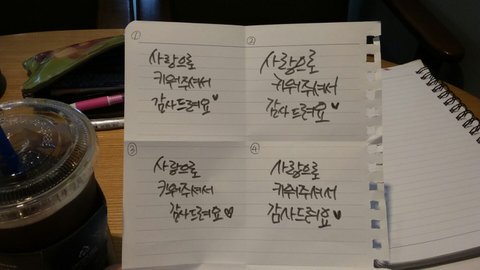 ①
사랑으로
키워주셔서
감사드려요♥
②
사랑으로
키워주셔서
감사드려요♥
③
사랑으로
키워주셔서
감사드려요♥
④
사랑으로
키워주셔서
감사드려요♥